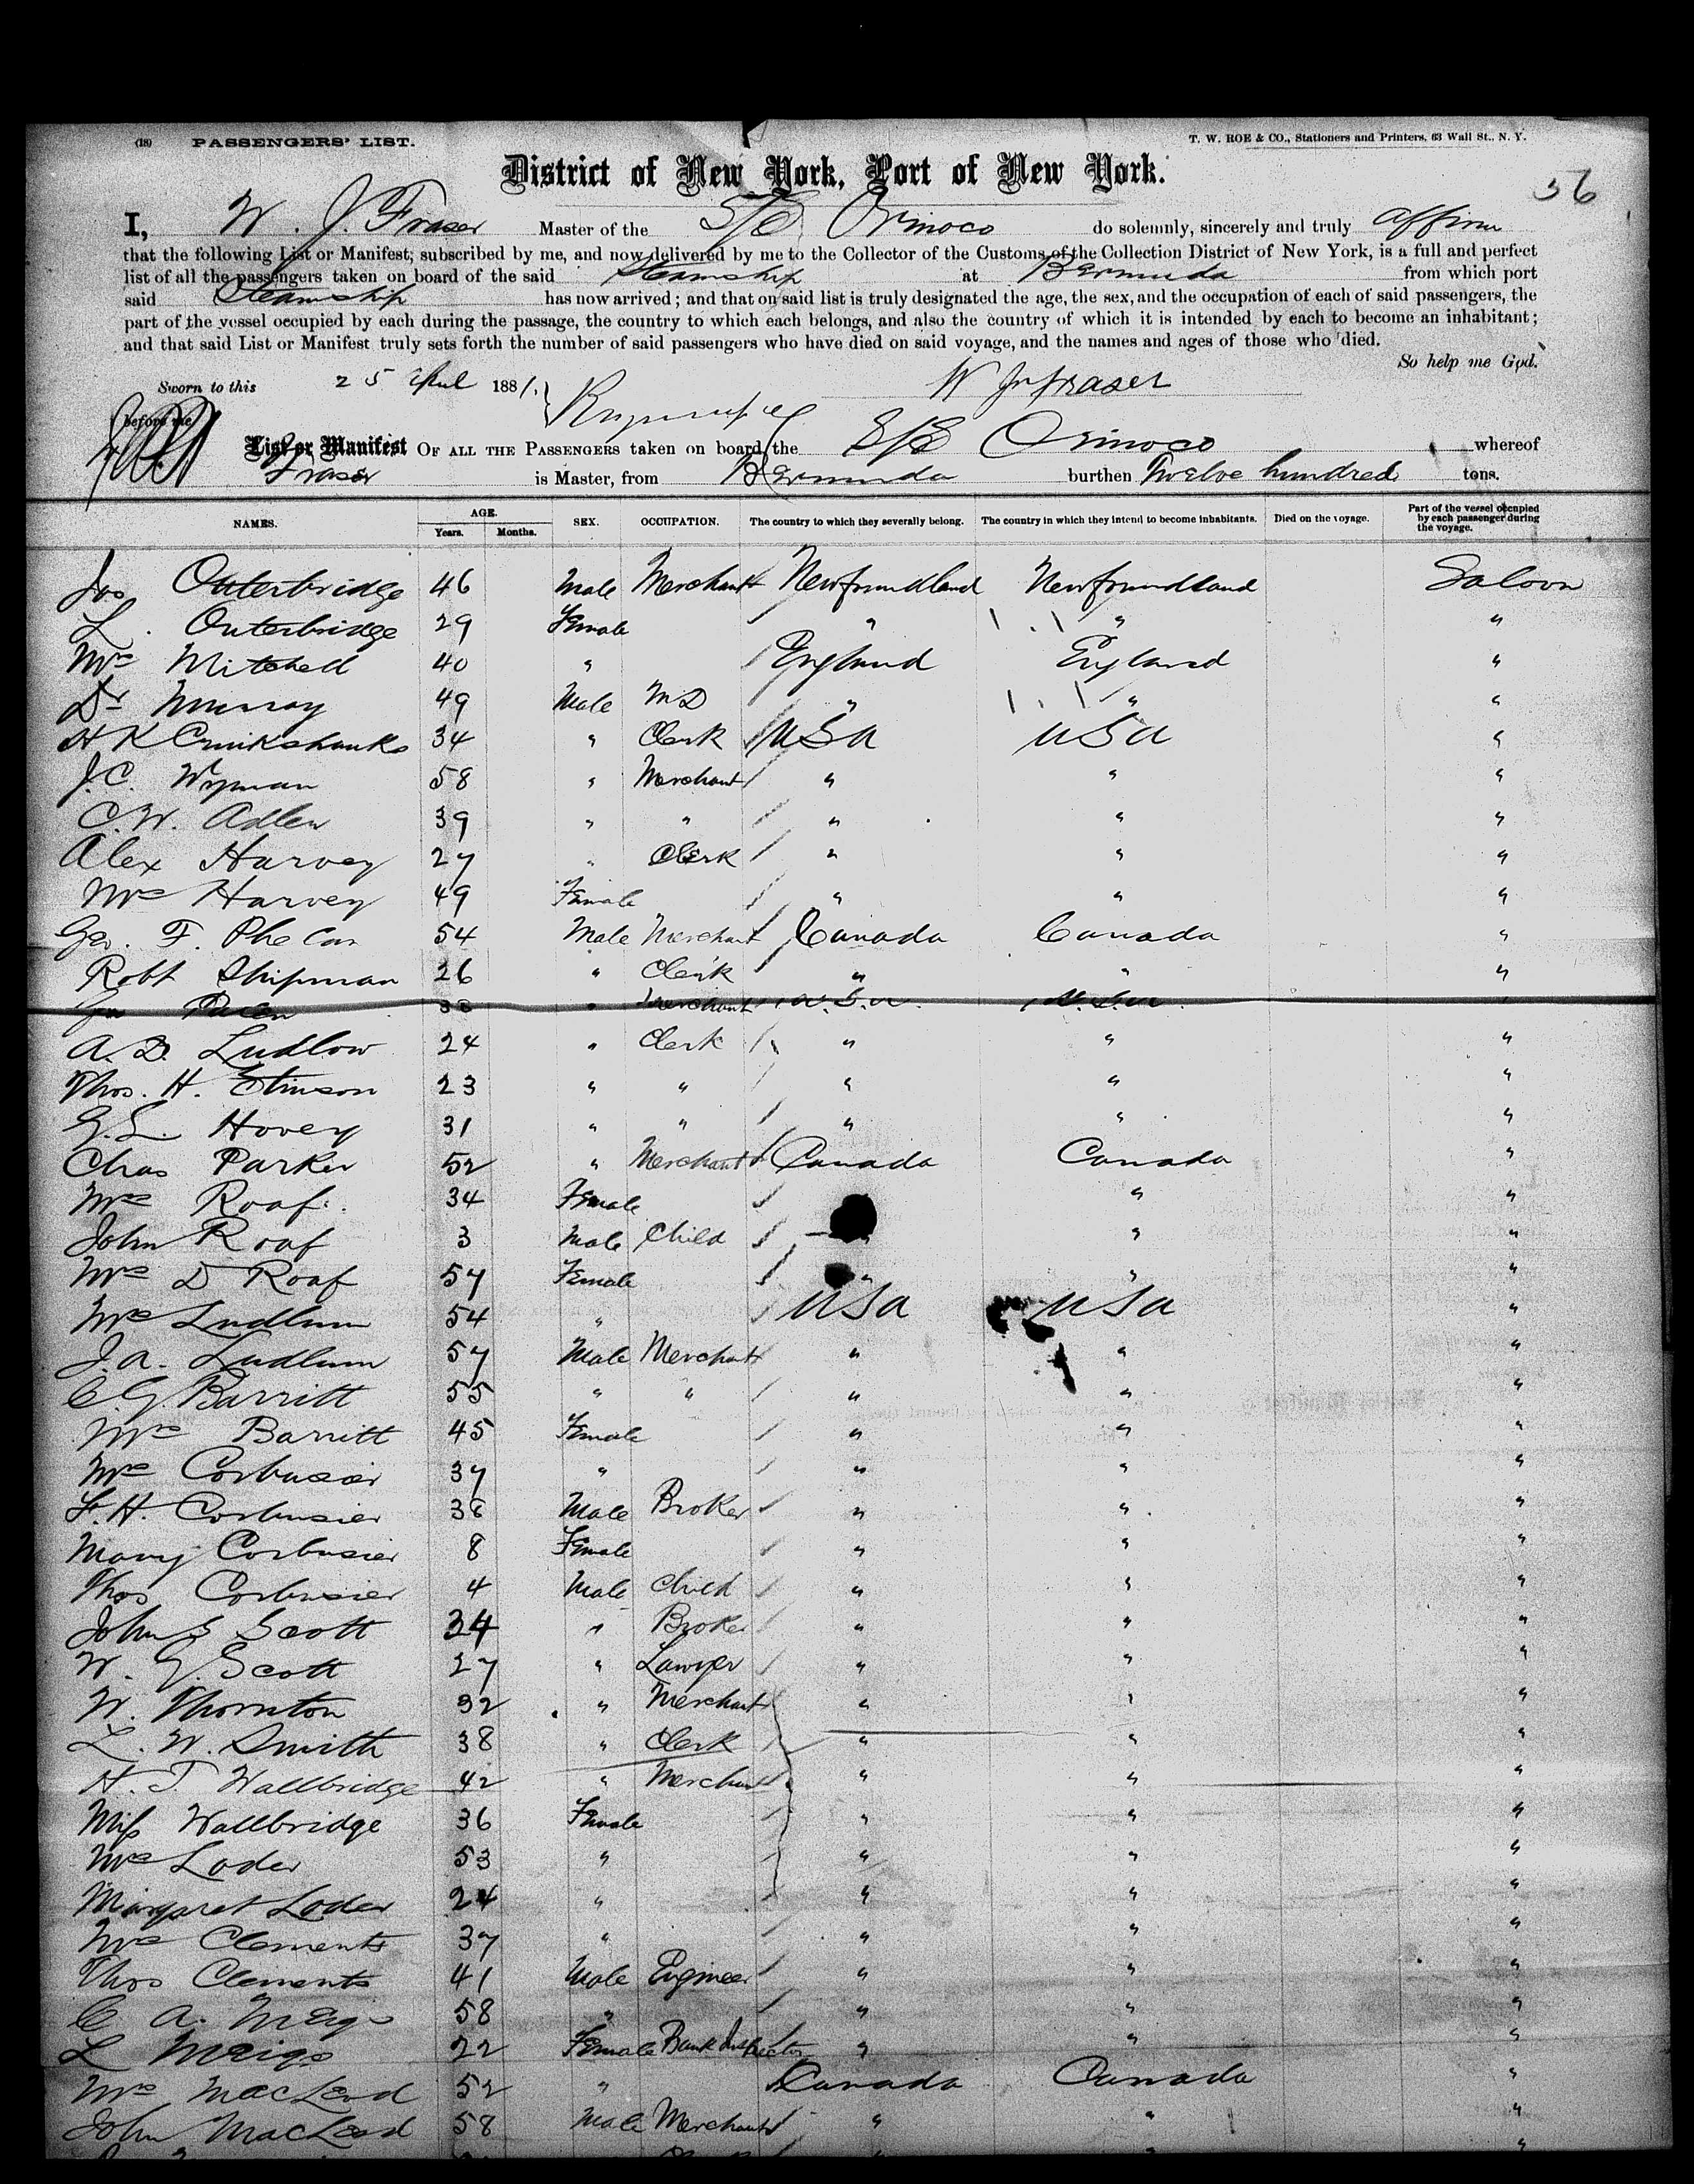 (18) PASSENGERS' LIST.
T. W. ROE & CO., Stationers and Printers, 63 Wall St., N. Y.
District of New York, Port of New York.
56
I, W. J. Fraser Master of the S/S Orinoco do solemnly, sincerely and truly affirm
that the following List or Manifest; subscribed by me, and now delivered by me to the Collector of the Customs of the Collection District of New York, is a full and perfect
list of all the passengers taken on board of the said Steamship at Bermuda from which port
said Steamship has now arrived; and that on said list is truly designated the age, the sex, and the occupation of each of said passengers, the
part of the vessel occupied by each during the passage, the country to which each belongs, and also the country of which it is intended by each to become an inhabitant;
and that said List or Manifest truly sets forth the number of said passengers who have died on said voyage, and the names and ages of those who died.
So help me God.
Sworn to this 25 April 1881. W J Fraser
before me
List or Manifest OF ALL THE PASSENGERS taken on board the S/S Orinoco whereof
Fraser is Master, from Bermuda burthen Twelve hundred tons.
NAMES. AGE. Years. Months. SEX. OCCUPATION. The country to which they severally belong. The country in which they intend to become inhabitants. Died on the voyage. Part of the vessel occupied by each passenger during the voyage.
Jos Outerbridge 46 Male Merchant Newfoundland Newfoundland Saloon
L. Outerbridge 29 Female " " "
Mrs Mitchell 40 " England England "
Dr Murray 49 Male MD " " "
H K Cruikshanks 34 " Clerk USA USA "
J.C. Wyman 58 " Merchant " " "
C.W. Adler 39 " " " " "
Alex Harvey 27 " Clerk " " "
Mrs Harvey 49 Female " " "
Geo. F. Phelan 54 Male Merchant Canada Canada "
Robt Shipman 26 " Clerk " " "
Geo " Merchant U.S.A. U.S.A. "
A.D. Ludlow 24 " Clerk " " "
Thos. H. Stinson 23 " " " " "
G.L. Hovey 31 " " " " "
Chas Parker 52 " Merchant Canada Canada "
Mrs Roaf 34 Female " "
John Roaf 3 Male Child " " "
Mrs D Roaf 57 Female " " "
Mrs Ludlum 54 " USA USA "
J.A. Ludlum 57 Male Merchant " " "
C.G. Barritt 55 " " " " "
Mrs Barritt 45 Female " " "
Mrs Corbusier 37 " " " "
F.H. Corbusier 36 Male Broker " " "
Mary Corbusier 8 Female " " "
Thos Corbusier 4 Male Child " " "
John S Scott 34 " Broker " " "
W. G. Scott 27 " Lawyer " " "
W. Thornton 32 " Merchant " " "
L. W. Smith 38 " Clerk " " "
H. T. Wallbridge 42 " Merchant " " "
Miss Wallbridge 36 Female " " "
Mrs Loder 53 " " " "
Margaret Loder 24 " " " "
Mrs Clements 37 " " " "
Thos Clements 41 Male Engineer " " "
C A. Meigs 58 " " " "
L Meigs 22 Female Bank Inspector " " "
Mrs MacLeod 52 " Canada Canada "
John MacLeod 58 Male Merchant " " "